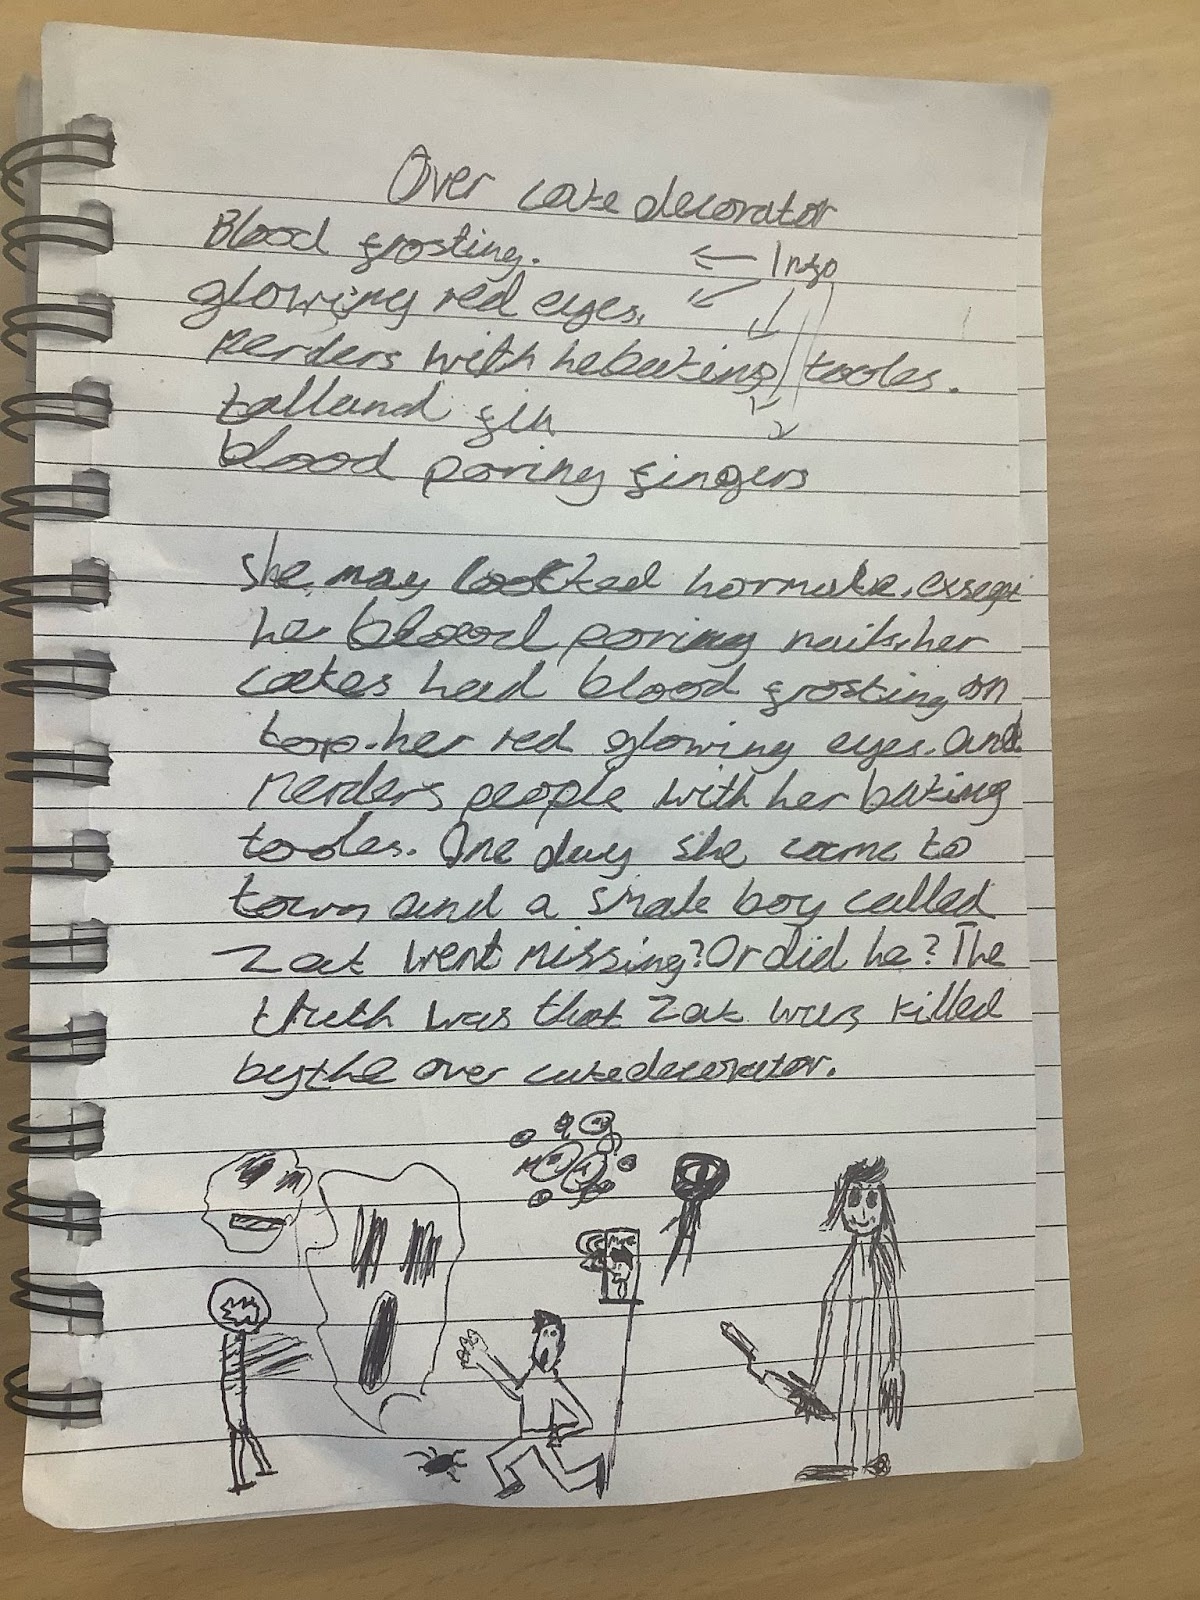 Over cake decorator
Blood frosting. Info
glowing red eyes.
merders with he baking tooles.
tall and fin
blood poring fingers
She may looked normale, exsept
her blood poring nails, her
cakes had blood frosting on
top. her red glowing eyes. and
merders people with her baking
tooles. One day she came to
town and a smale boy called
Zak went missing? Or did he? The
truth was that Zak was killed
by the over cake decorator.